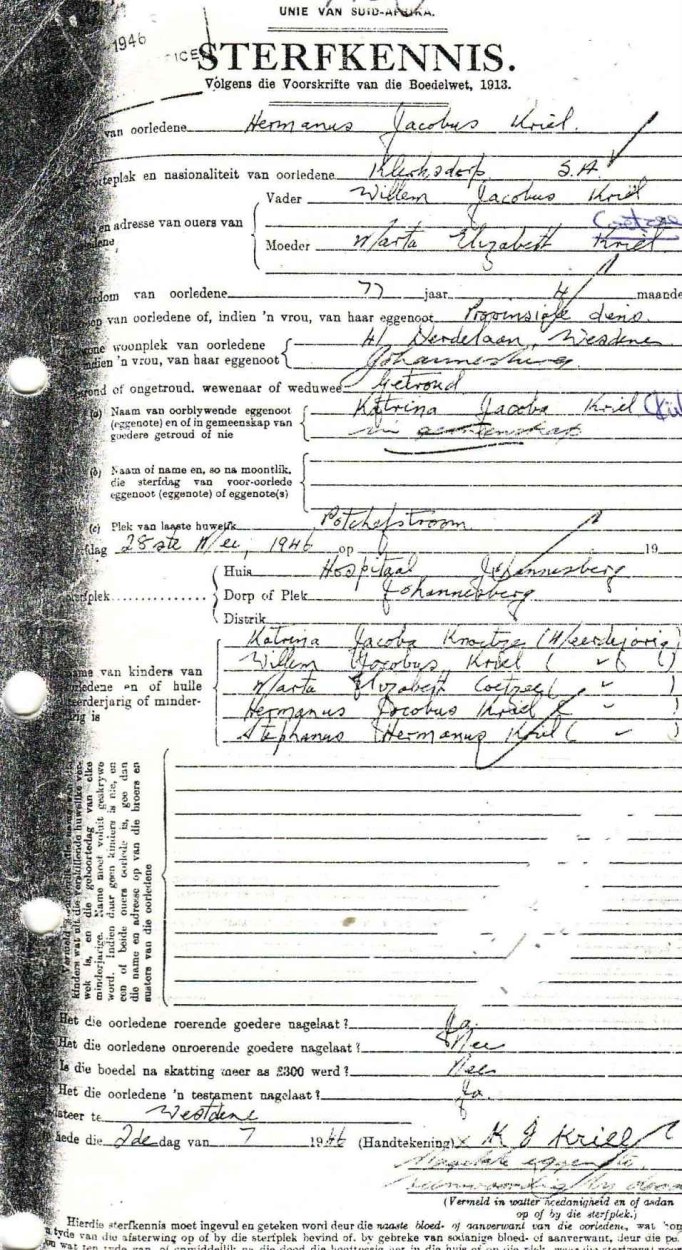 UNIE VAN SUID-AFRIKA.
1946
STERFKENNIS.
Volgens die Voorskrifte van die Boedelwet, 1913.
van oorledene Hermanus Jacobus Kriel.
teplek en nasionaliteit van oorledene Klerksdorp S.A
Vader Willem Jacobus Kriel
en adresse van ouers van
Coetzee
Moeder Marta Elizabeth Kriel
dom van oorledene 77 jaar 4 maande
van oorledene of, indien 'n vrou, van haar eggenoot Provinsiale diens
one woonplek van oorledene 41 Derdelaan, Westdene
indien 'n vrou, van haar eggenoot Johannesburg
of ongetroud. wewenaar of weduwee Getroud
(a) Naam van oorblywende eggenoot Katrina Jacoba Kriel
(eggenote) en of in gemeenskap van in gemeenskap
goedere getroud of nie
(b) Naam of name en, so na moontlik,
die sterfdag van voor-oorlede
eggenoot (eggenote) of eggenote(s)
(c) Plek van laaste huwelik Potchefstroom
fdag 28ste Mei, 1946 op 19
Huis Hospitaal Johannesberg
plek Dorp of Plek Johannesberg
Distrik
Katrina Jacoba (Meerderjarig)
Willem Jacobus Kriel ( " )
name van kinders van Marta Elizabeth Coetzee ( " )
oorledene en of hulle
eerderjarig of minder- Hermanus Jacobus Kriel ( " )
rig is Stephanus Hermanus Kriel ( " )
kinders wat uit die verskillende huwelike ver-
wek is, en die geboortedag van elke
minderjarige. Name moet voluit geskrywe
word. Indien daar geen kinders is nie, en
een of beide ouers oorlede is, gee dan
die name en adresse op van die broers en
susters van die oorledene
Het die oorledene roerende goedere nagelaat? Ja.
Het die oorledene onroerende goedere nagelaat? Nee
Is die boedel na skatting meer as £300 werd? Nee
Het die oorledene 'n testament nagelaat? Ja.
dateer te Westdene
hede die 2de dag van 7 1946 (Handtekening) x K J Kriel
(Vermeld in watter hoedanigheid en of aldan
op of by die sterfplek.)
Hierdie sterfkennis moet ingevul en geteken word deur die naaste bloed- of aanverwant van die oorledene, wat
tyde van die afsterwing op of by die sterfplek bevind of. by gebreke van sodanige bloed- of aanverwant, deur die